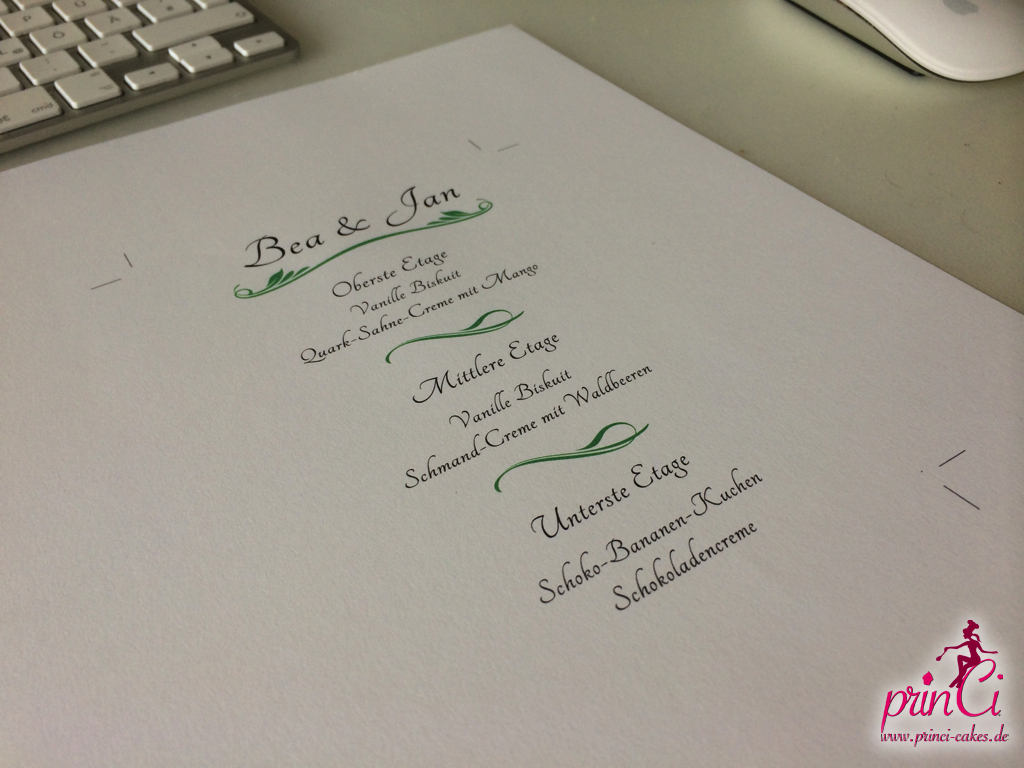 Bea & Jan
Oberste Etage
Vanille Biskuit
Quark-Sahne-Creme mit Mango
Mittlere Etage
Vanille Biskuit
Schmand-Creme mit Waldbeeren
Unterste Etage
Schoko-Bananen-Kuchen
Schokoladencreme
prinCi
www.princi-cakes.de
P
Ü
Ö
Ä
cmd